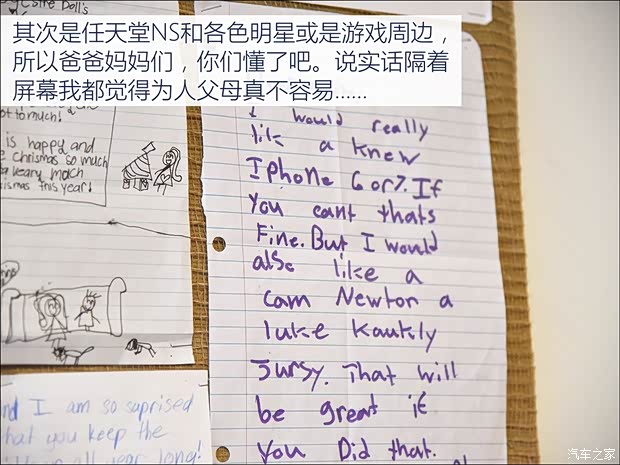 其次是任天堂NS和各色明星或是游戏周边，
所以爸爸妈妈们，你们懂了吧。说实话隔着
屏幕我都觉得为人父母真不容易……
Doll's
ot to much!
is happy and
Chrismas so much
a veary moch
ismas this year!
I would really
like a knew
Iphone 6 or 7. If
you cant thats
Fine. But I would
also like a
cam Newton a
luke Kautkly
Jursy. That will
be great if
you Did that.
nd I am so suprised
that you keep the
all year long!
汽车之家